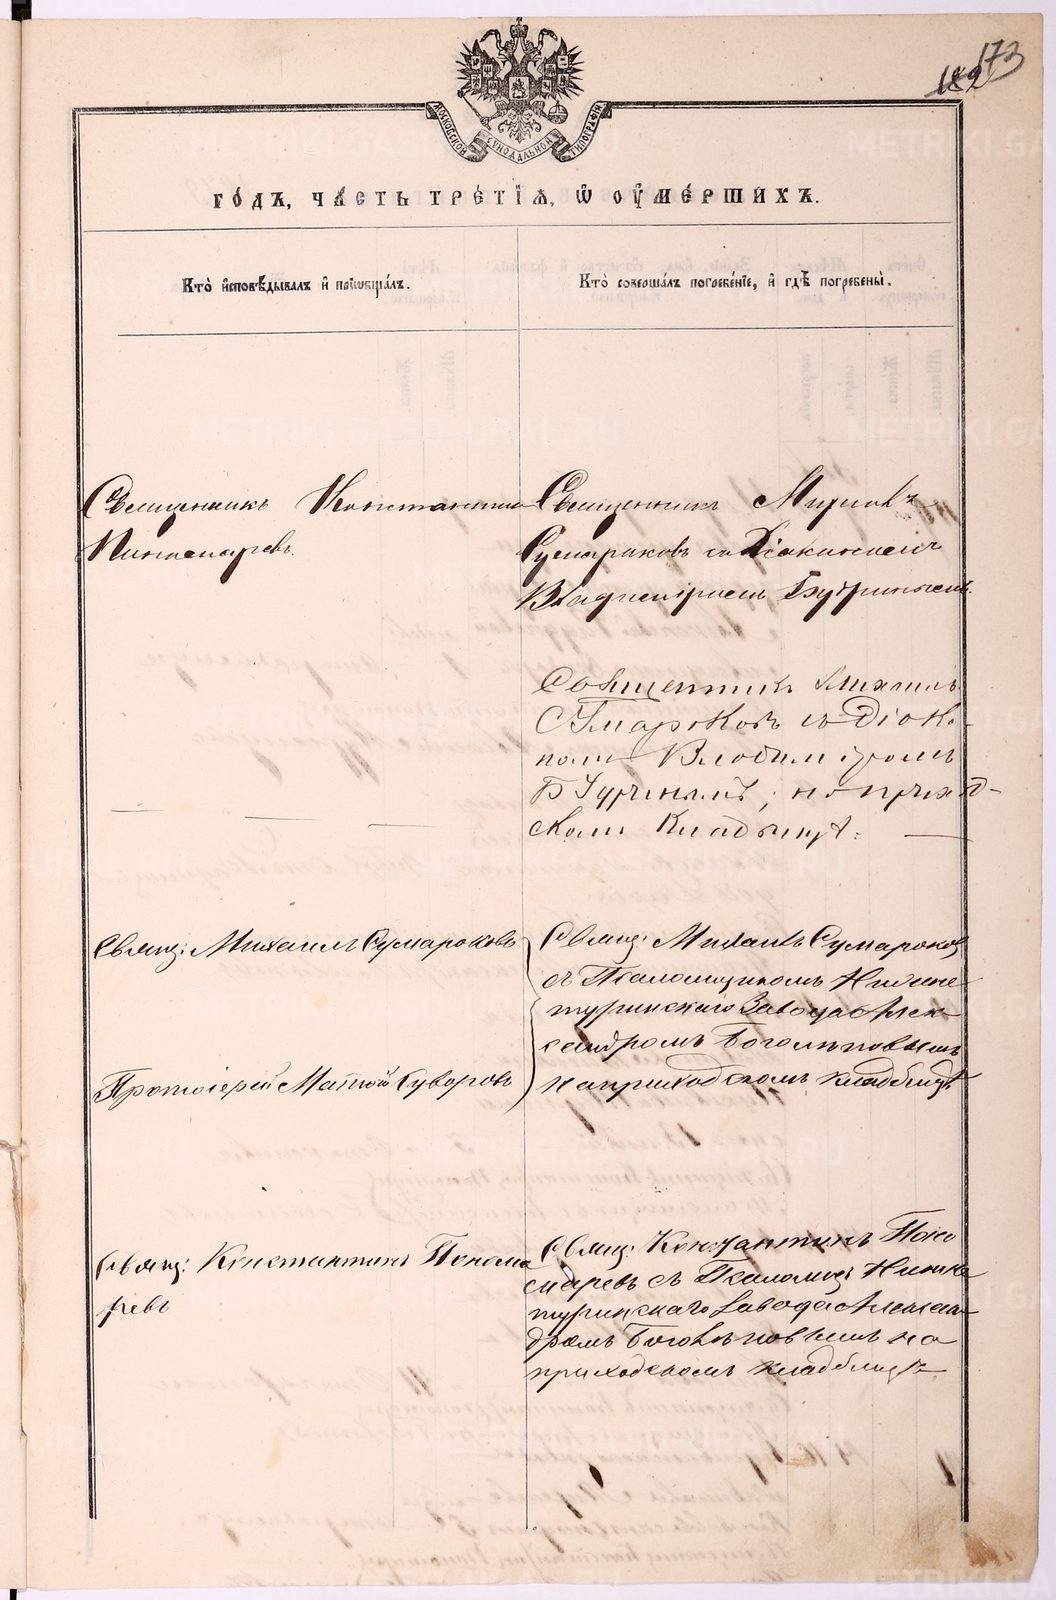 173
МОСКОВСКОЙ СѴНОДАЛЬНОЙ ТИПОГРАФІИ
ГО́ДЪ, ЧА́СТЬ ТРЕ́ТІѦ, Ѡ҆ ОУ҆МЕ́РШИХЪ.
Кто̀ и҆сповѣ́дывалъ и҆ пріѡбща́лъ.
Кто̀ соверша́лъ погребе́ніе, и҆ гдѣ̀ погребены̀.
Священникъ Константинъ
Пономаревъ
Священникъ Михаилъ
Сумароковъ съ Діакономъ
Владиміромъ Будринымъ.
Священникъ Михаилъ
Сумароковъ съ Діако-
номъ Владиміромъ
на приход-
скомъ Кладбищѣ.
Свящ: Михаилъ Сумароковъ
Протоіерей Матѳій Суворовъ
Свящ: Михаилъ Сумароковъ
съ Псаломщикомъ Нижне
туринскаго Завода Алек
сандромъ Боголѣповымъ
на приходскомъ кладбищѣ
Свящ: Константинъ Понома
ревъ
Свящ: Константинъ Поно
маревъ съ Псаломщ: Нижне
туринскаго Завода Алексан
дромъ Боголѣповымъ на
приходскомъ кладбищѣ
METRIKI.GASO-URAL.RU